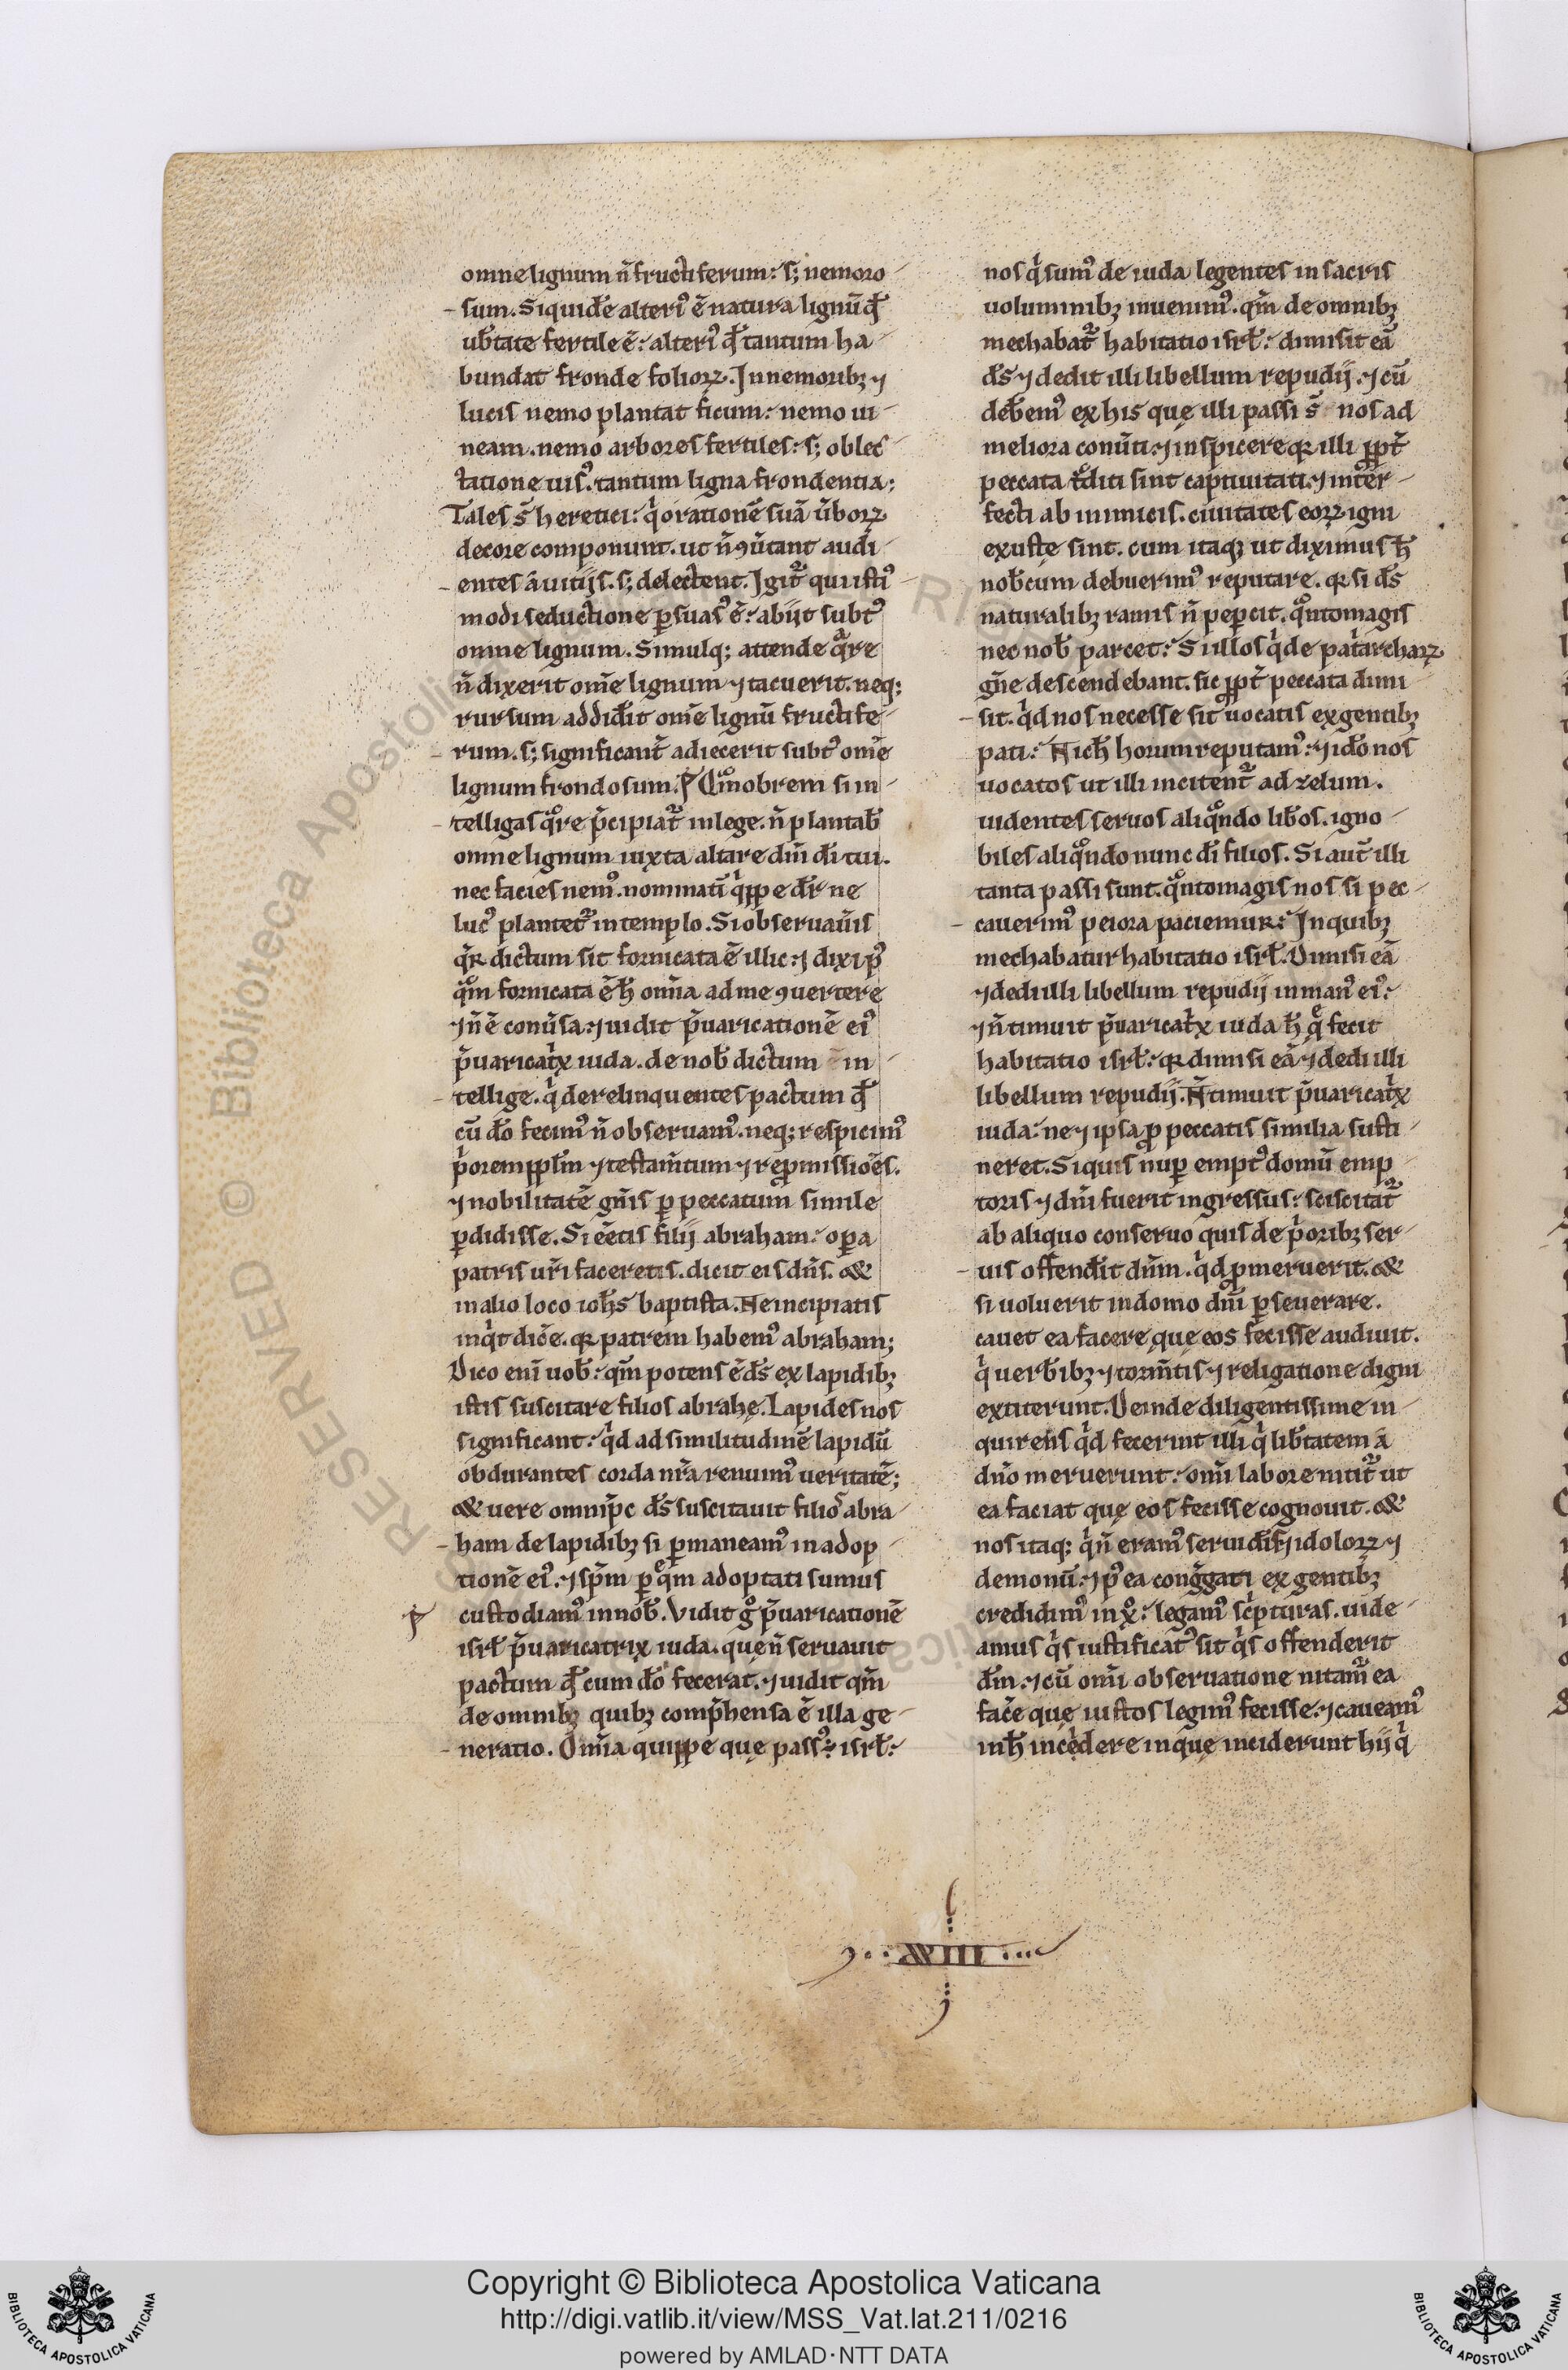 omne lignum n̄ fructiferum: s; nemoro
sum. Siquidē alteri᷒ ē natura lignū qđ
ub̄tate fertile ē: alteri᷒ qđ tantum ha
bundat fronde folioꝝ. In nemoribꝫ ⁊
lucis nemo plantat ficum: nemo ui
neam. nemo arbores fertiles: s; oblec
tatione uis᷒. tantum ligna frondentia;
Tales s̄ heretici: q̇ orationē suā ūboꝝ
decore componunt. ut n̄ ꝯūtant audi
entes a uitijs. s; delectent. Igit᷑ qui isti᷒
modi seductione ꝑsuas᷒ ē: abijt subt᷒
omne lignum. Simulq; attende qᷓre
n̄ dixerit om̄e lignum ⁊ tacuerit. neq;
rursum addid̄it om̄e lignū fructife
rum. s; significant̄ adiecerit subt᷒ om̄e
lignum frondosum. Qͦmobrem si in
telligas qͣre p̄cipiat᷑ in lege. n̄ plantab̄
omne lignum iuxta altare dn̄i di̅ tui.
nec facies nem᷒. nominati̅ q̇ppe dr̄ ne
luc᷒ plantet᷑ in templo. Si obseruaūis
qᷓꝛ dictum sit fornicata ē illic: ⁊ dixi p᷒
qͣm fornicata ē h̄ om̄ia ad me ꝯuertere
⁊ n̄ ē conūsa: ⁊ uidit p̄uaricationē ei᷒
p̄uaricat̍x iuda. de nob̄ dictum in
tellige. q̇ derelinquentes pactum qđ
cū do̅ fecim᷒ n̄ obseruam᷒. neq; respicim᷒
p̍orem pp̄lm ⁊ testam̄tum ⁊ reꝓmissioēs.
⁊ nobilitatē gn̄is ꝑ peccatum simile
ꝑdidisse. Si eētis filij abraham: oꝑa
patris ur̄i faceretis. dicit eis dn̄s. &
in alio loco ioh̄s baptista. Ne incipiatis
inq̇t dic̄e. qꝛ patrem habem᷒ abraham;
Dico eni̅ uob̄: qm̄ potens ē ds̄ ex lapidibꝫ
istis suscitare filios abrahę. Lapides nos
significant: q̇d ad similitudinē lapidū
obdurantes corda nr̄a renuim᷒ ueritatē;
& uere omnip̄c ds̄ suscitauit filios abra
ham de lapidibꝫ si ꝑmaneam᷒ in adop
tionē ei᷒. ⁊ sp̄m ꝑ qͤm adoptati sumus
custodiam᷒ in nob̄. Vidit gͦ p̄uaricationē
isrl̄ p̄uaricatrix iuda. que n̄ seruauit
pactum qđ cum do̅ fecerat. ⁊ uidit qm̄
de omnibꝫ quibꝫ comp̄hensa ē illa ge
neratio. Om̄ia quippe que pass᷒: isrl̄:
nos q̇ sum᷒ de iuda legentes in sacris
uoluminibꝫ inuenim᷒. qm̄ de omnibꝫ
mechabat᷑ habitatio isrl̄: dimisit eā
ds̄ ⁊ dedit illi libellum repudij. ⁊ cū
deb̄em᷒ ex his quę illi passi s̄ nos ad
meliora conūti: ⁊ inspicere qꝛ illi ꝓpt̄
peccata tͣditi sint captiuitati: ⁊ int̄er
fecti ab inimicis. ciuitates eoꝝ igni
exustę sint. cum itaqꝫ ut diximus h̄
nob̄cum debuerim᷒ reputare. qꝛ si ds̄
naturalibꝫ ramis n̄ peꝑcit. qͣntomagis
nec nob̄ parcet: Si illos q̇ de pat̍archaꝝ
gn̄e descendebant. sic ꝓpt̄ peccata dimi
sit. q̇d nos necesse sit uocatis ex gentibꝫ
pati: Nich̄ horum reputam᷒: ⁊ ido̅ nos
uocatos ut illi incitent᷑ ad zelum.
uidentes seruos aliqͣndo lib̄os. igno
biles aliqͣndo nunc di̅ filios. Si aut̄ illi
tanta passi sunt. qͣntomagis nos si pec
cauerim᷒ peiora paciemur: In quibꝫ
mechabatur habitatio isrl̄. Dimisi eā
⁊ dedi illi libellum repudij in man᷒ ei᷒:
⁊ n̄ timuit p̄uaricat̍x iuda h̄ qͤ fecit
habitatio isrl̄: qꝛ dimisi eā ⁊ dedi illi
libellum repudij. N̄ timuit p̄uaricat̍x
iuda: ne ⁊ ipsa ꝓ peccatis similia susti
neret. Si quis nuꝑ empt᷒ domū emp
toris ⁊ dn̄i fuerit ingressus: sciscitat᷑
ab aliquo conseruo quis de p̍oribꝫ ser
uis offend̄it dn̄m. q̇d ꝓmeruerit. &
si uoluerit in domo dn̄i ꝑseuerare.
cauet ea facere quę eos fecisse audiuit.
q̇ uerb̄ibꝫ ⁊ torm̄tis ⁊ religatione digni
extiterunt. Deinde diligentissime in
quirens q̇d fecerint illi q̇ lib̄tatem a
dn̄o meruerunt: om̄i labore nitit᷑ ut
ea faciat quę eos fecisse cognouit. &
nos itaq; q̇ n̄ eram᷒ serui di̅ s; idoloꝝ ⁊
demonū: ⁊ p᷒ ea congͣgati ex gentibꝫ
credidim᷒ in xͦ: legam᷒ sc̍pturas. uide
amus q̇s iustificat᷒ sit q̇s offenderit
dm̄. ⁊ cū om̄i obseruatione nitam᷑ ea
fac̄e quę iustos legim᷒ fecisse: ⁊ caueam᷒
in h̄ incędere in quę inciderunt hij q̇
XVIII
Copyright © Biblioteca Apostolica Vaticana
http://digi.vatlib.it/view/MSS_Vat.lat.211/0216
powered by AMLAD·NTT DATA